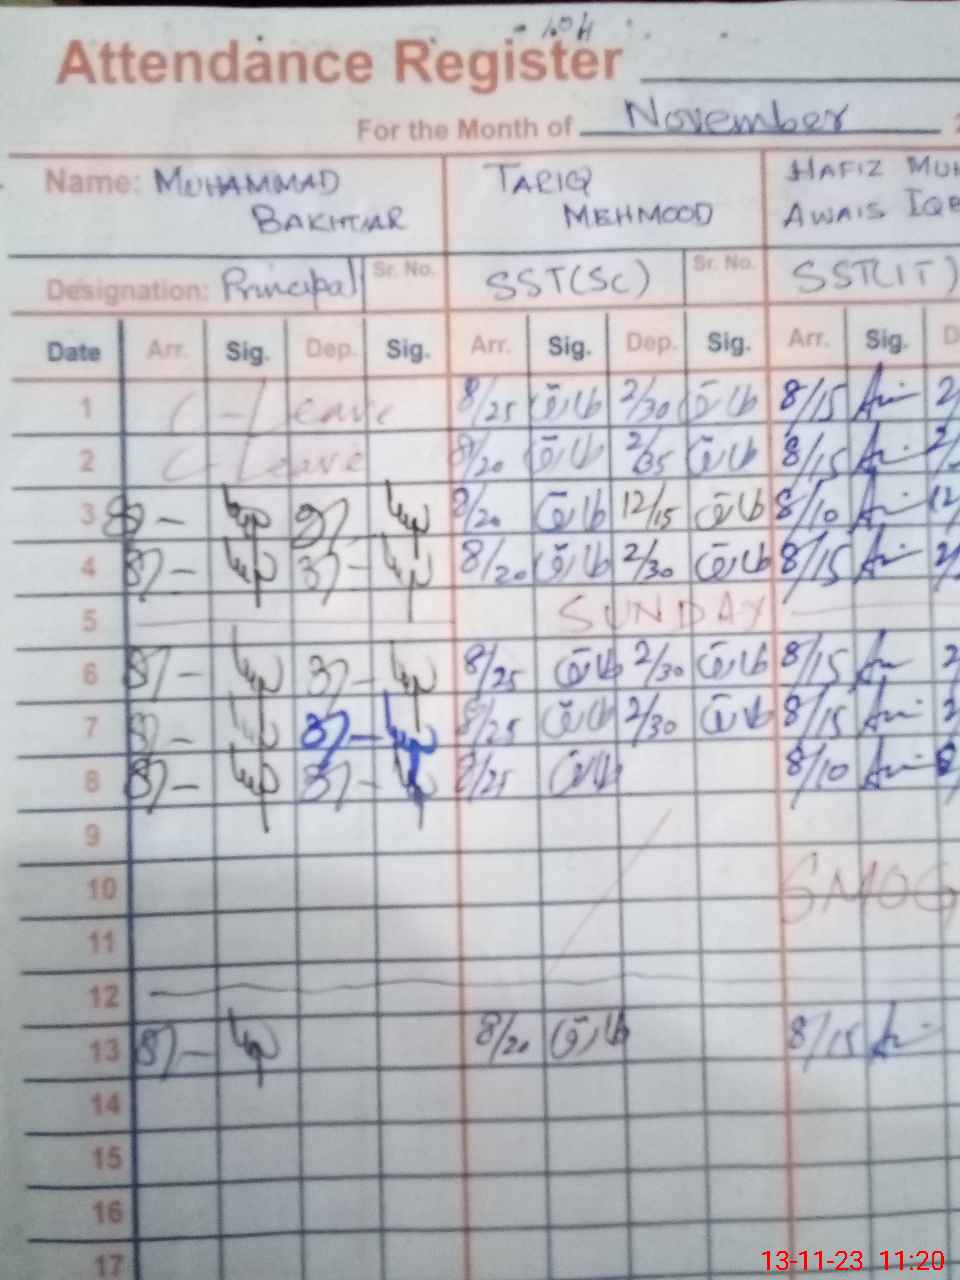 Attendance Register
For the Month of November
Name: MUHAMMAD BAKHTIAR TARIQ MEHMOOD HAFIZ MUH AWAIS IQB
Designation: Principal Sr. No. SST(SC) Sr. No. SST(IT)
Date Arr. Sig. Dep. Sig. Arr. Sig. Dep. Sig. Arr. Sig. D
1 C-Leave 8/25 طارق 2/30 طارق 8/15 2/
2 C-Leave 8/20 طارق 2/35 طارق 8/15 2/
3 8/20 طارق 12/15 طارق 8/10 12/
4 8/20 طارق 2/30 طارق 8/15 2/
5 SUNDAY
6 8/25 طارق 2/30 طارق 8/15 2
7 8/25 طارق 2/30 طارق 8/15 2
8 8/25 طارق 8/10
9
10 SMOG
11
12
13 8/20 طارق 8/15
14
15
16
17
13-11-23 11:20